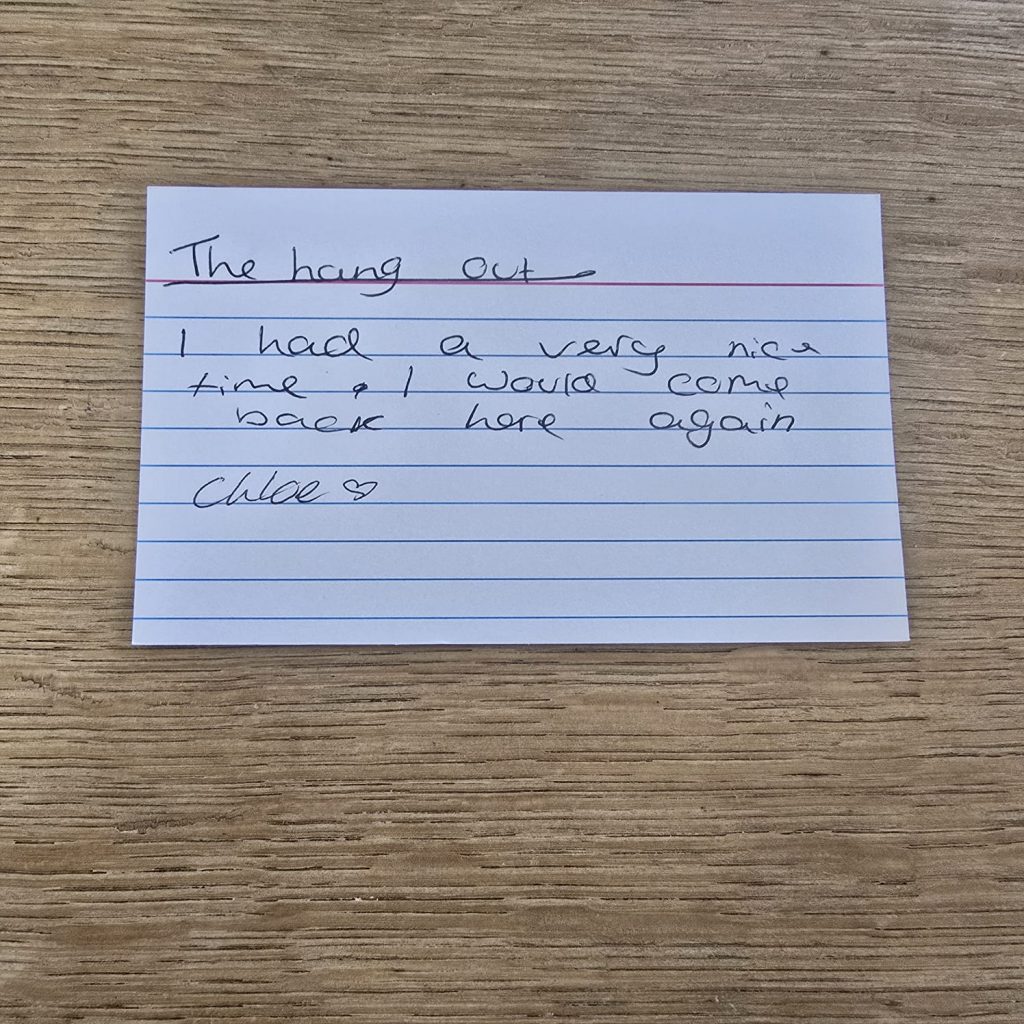 The hang out
I had a very nice
time. I would come
back here again
Chloe ♡